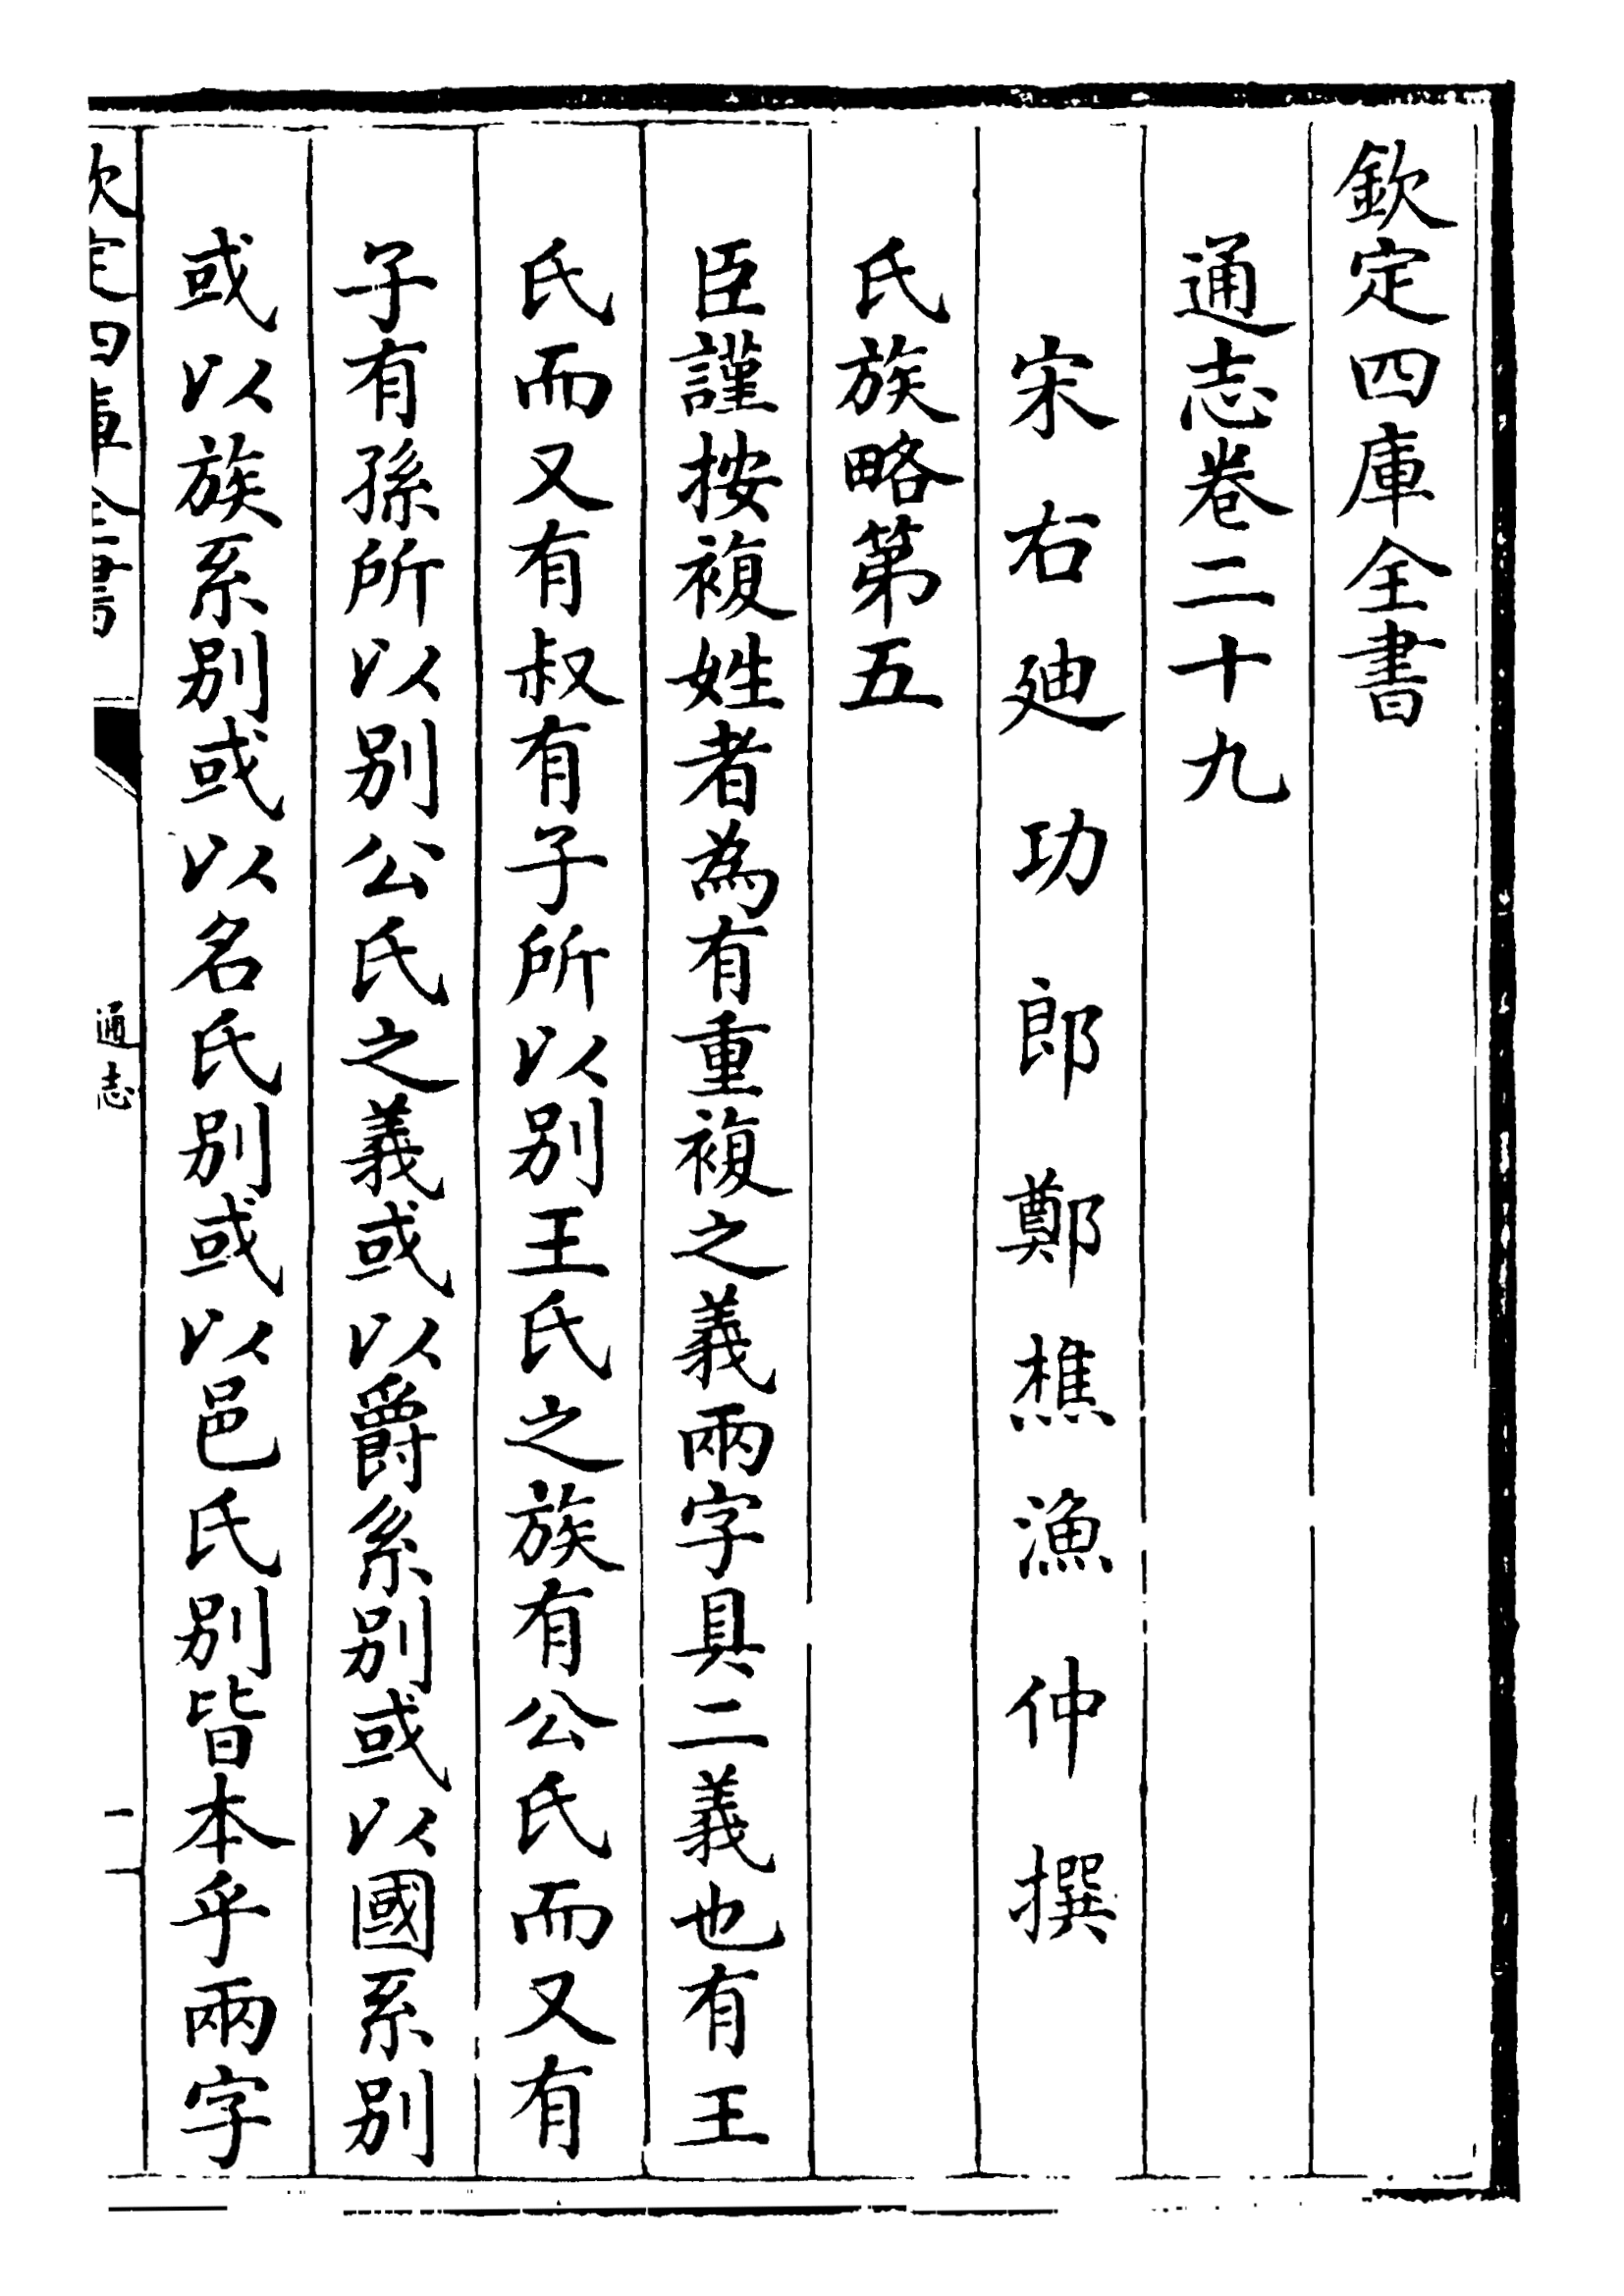 欽定四庫全書
通志卷二十九
宋右廸功郎鄭樵漁仲撰
氏族略第五
臣謹按複姓者為有重複之義兩字具二義也有王
氏而又有叔有子所以别王氏之族有公氏而又有
子有孫所以别公氏之義或以爵系别或以國系别
或以族系别或以名氏别或以邑氏别皆本乎兩字
欽定四庫全書
通志
一